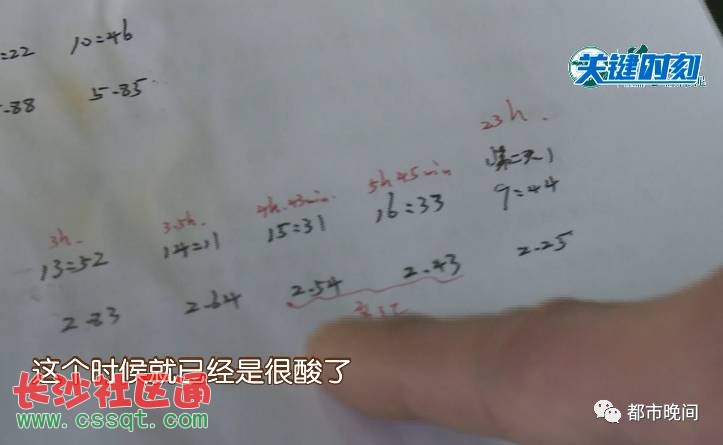 =22 10=46
.88 5.85
关键时刻
23h.
(第二天)
3h. 3.5h. 4h.43min. 5h45min
13=52 14=11 15=31 16=33 9=44
2.83 2.64 2.54 2.43 2.25
变红
这个时候就已经是很酸了
长沙社区通
www.cssqt.com
都市晚间